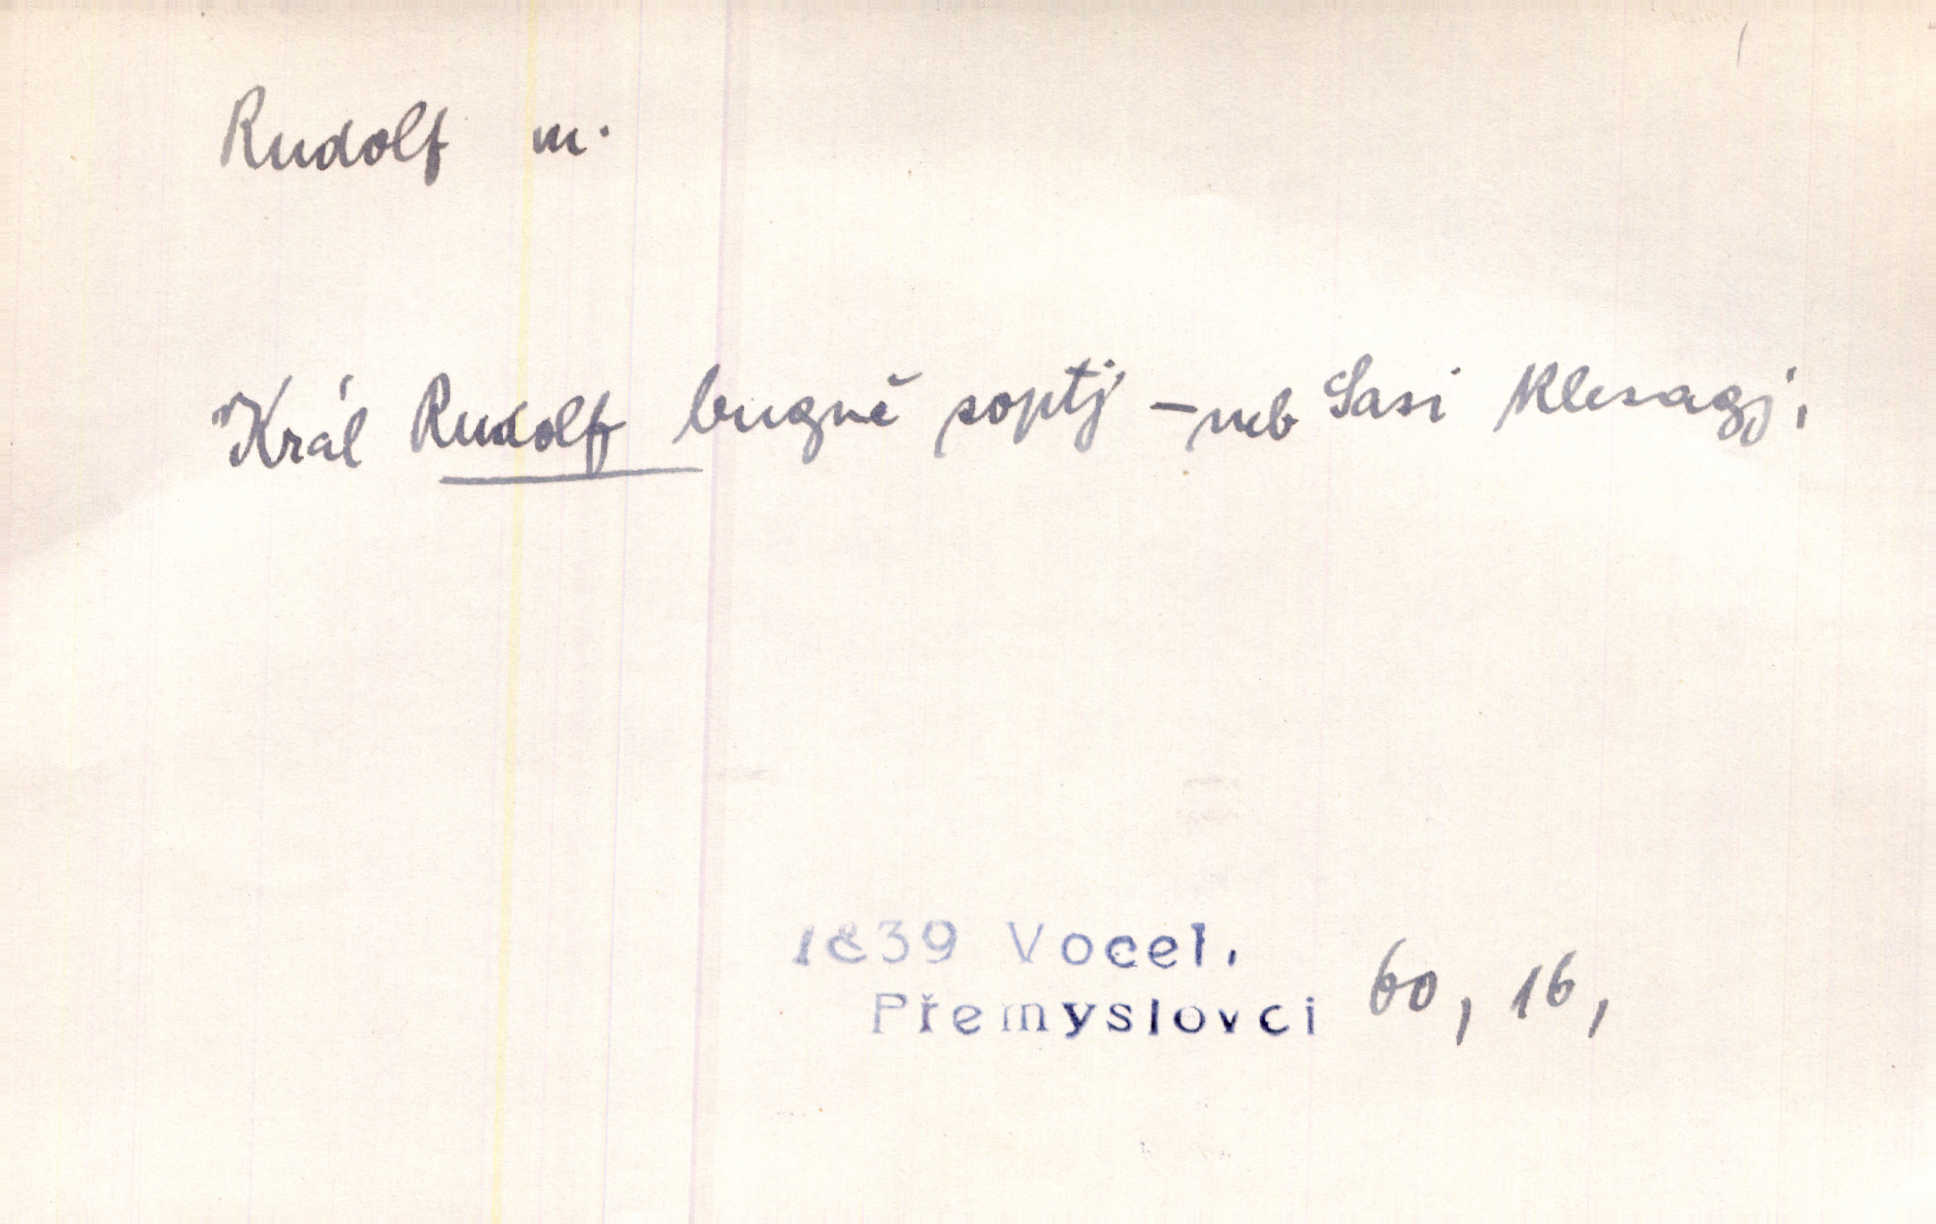 Rudolf m.
Král Rudolf bugně soptj — neb Sasi klesagj,
1839 Vocel,
Přemyslovci 60, 16,